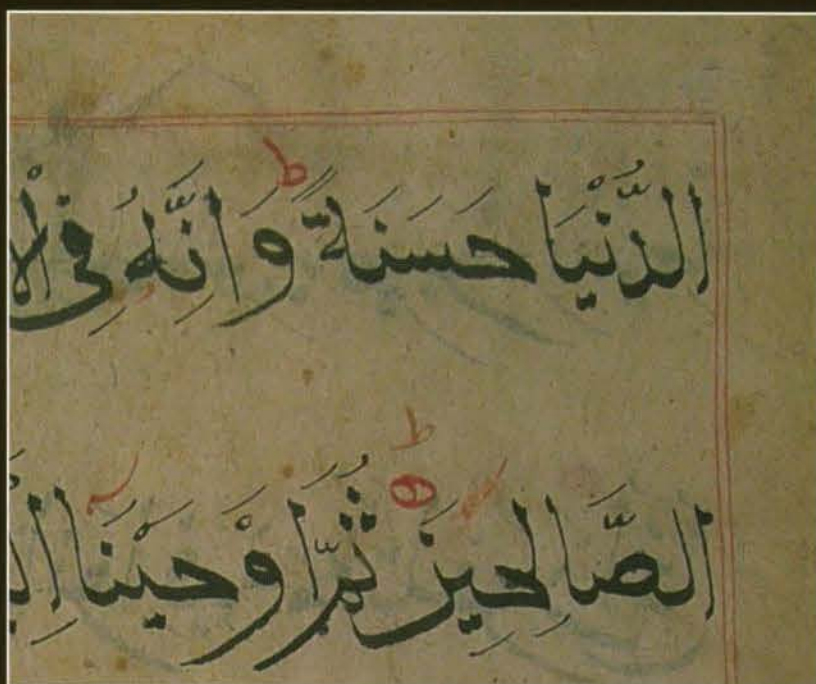 الدُّنْيَا حَسَنَةً ط وَاِنَّهُ فِى الْا
الصَّالِحِينَ ط ثُمَّ اَوْحَيْنَا اِلَ